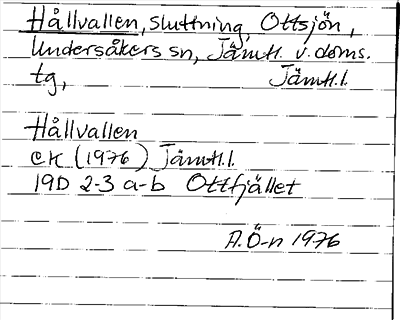 Hållvallen, sluttning, Ottsjön,
Undersåkers sn, Jämtl. v. doms.
tg, Jämtl.l.
Hållvallen
ek (1976) Jämtl.l.
19D 2-3 a-b Ottfjället
A.Ö-n 1976